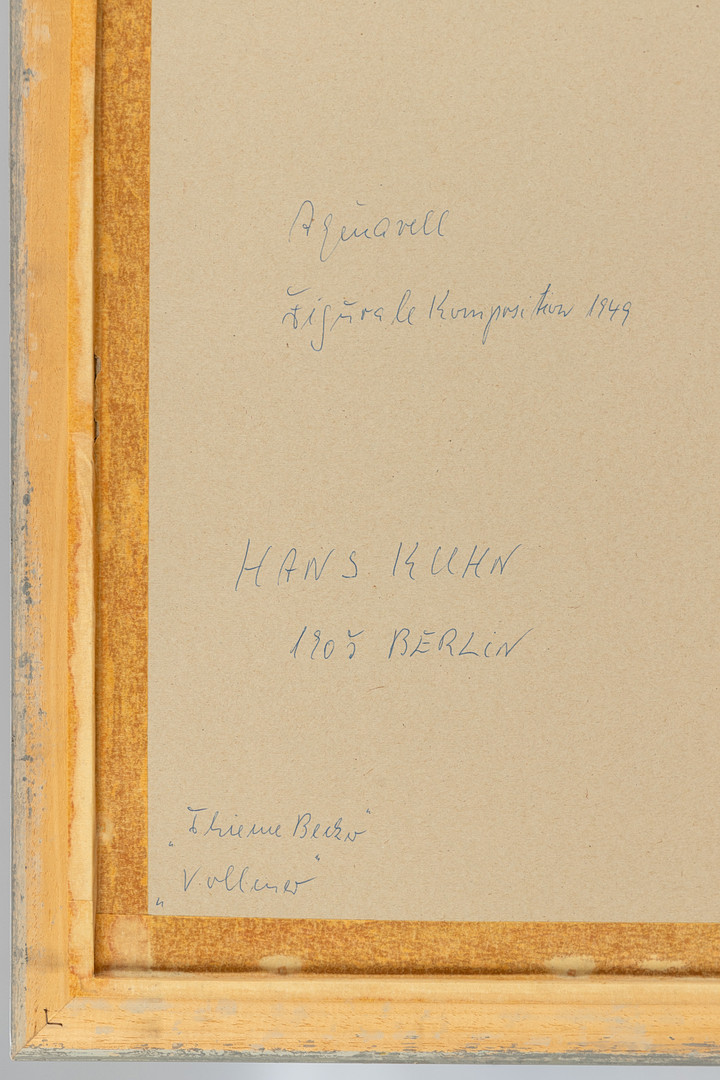 Aquarell
Figurale Komposition 1949
HANS KUHN
1905 BERLIN
"Thieme Becker"
"Vollmer"